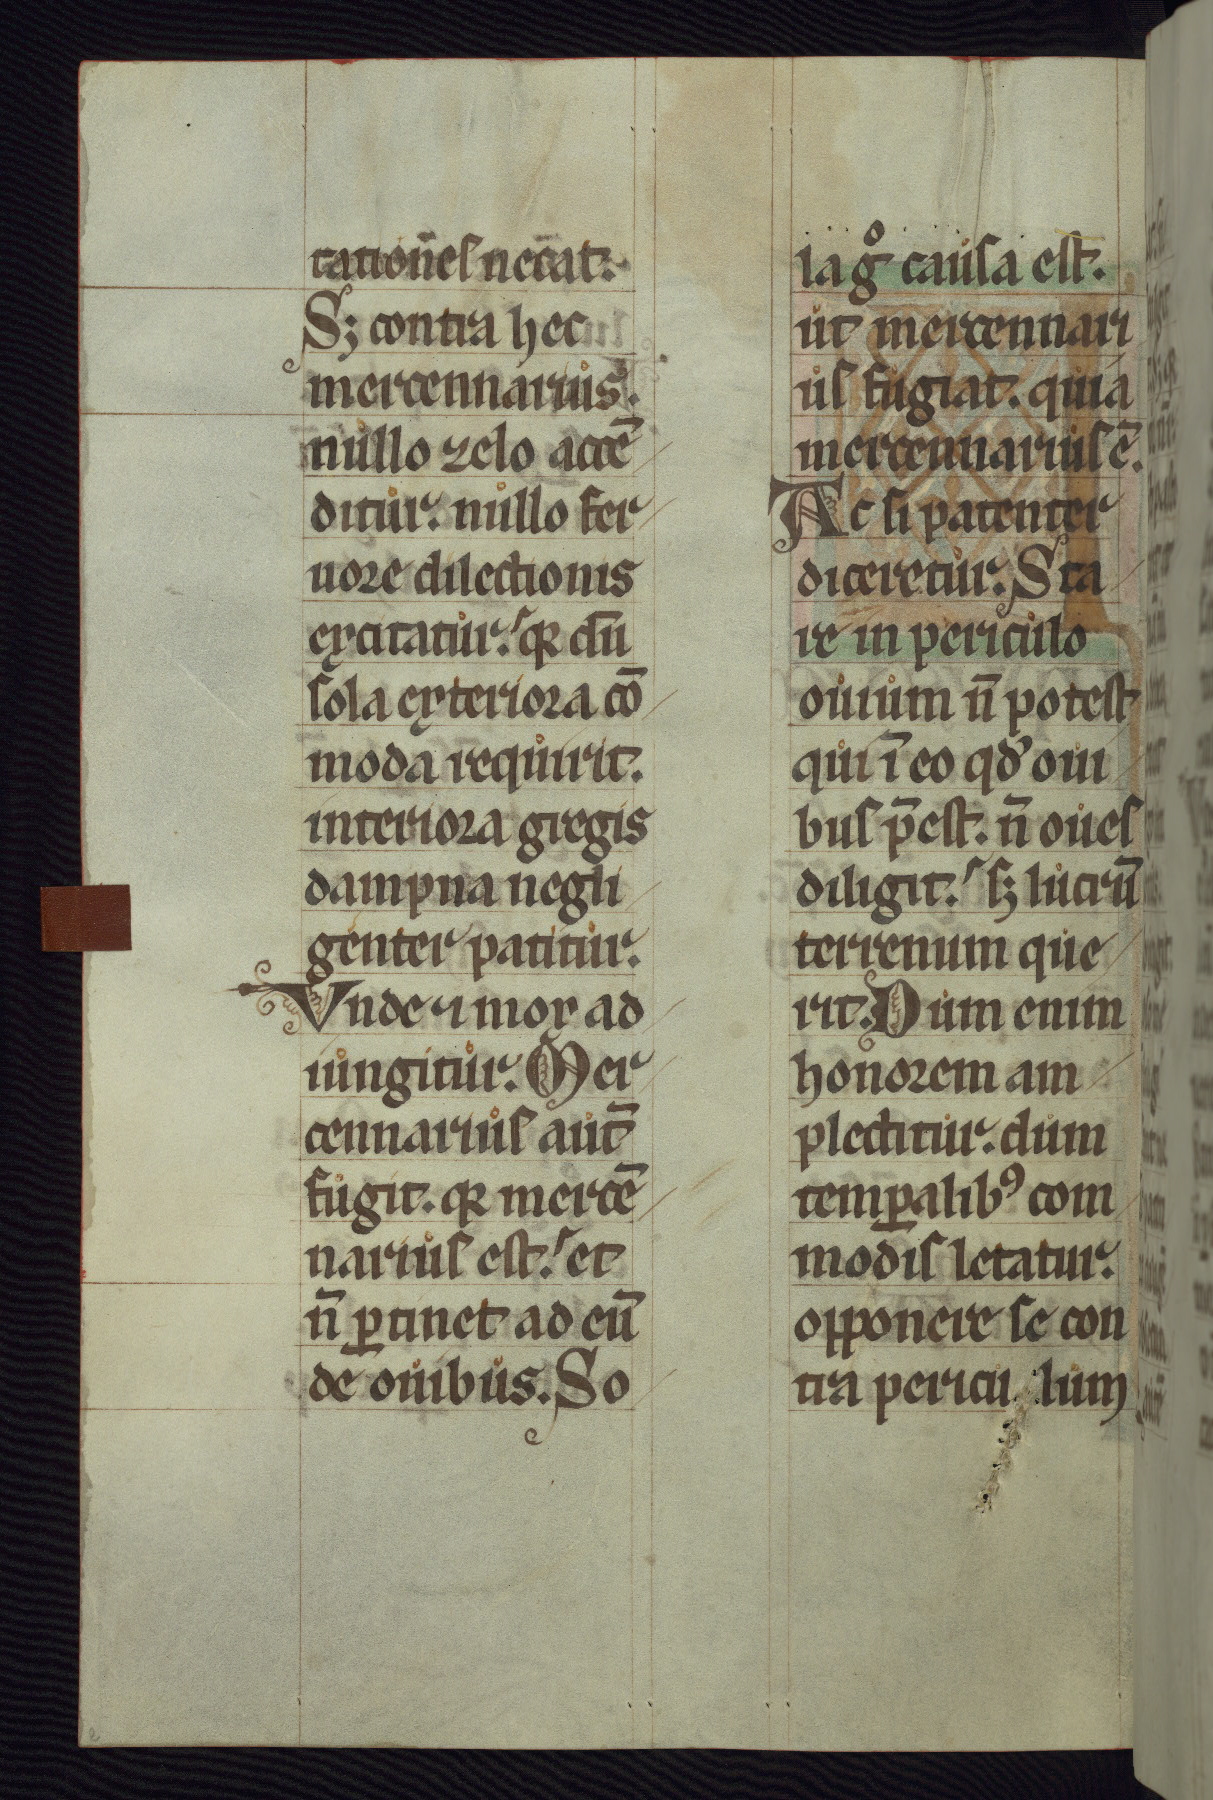 tationes necat.
Sꝫ contra hec
mercennarius.
nullo zelo accē
ditur. nullo fer
uore dilectionis
excitatur. qꝛ dū
sola exteriora cō
moda requirit.
interiora gregis
dampna negli
genter patitur.
Vnde ⁊ mox ad
iungitur. Mer
cennarius aut̄
fugit. qꝛ mercē
narius est. et
n̄ ꝑtinet ad eū
de ouibus. So
la gͦ causa est.
ut mercennari
us fugiat. quia
mercennarius ē.
Ac si patenter
diceretur. Sta
re in periculo
ouium n̄ potest
qui ī eo qd̓ oui
bus p̄est. n̄ oues
diligit. sꝫ lucrū
terrenum que
rit. Dum enim
honorem am
plectitur. dum
temꝑalibꝰ com
modis letatur.
opponere se con
tra pericu lum